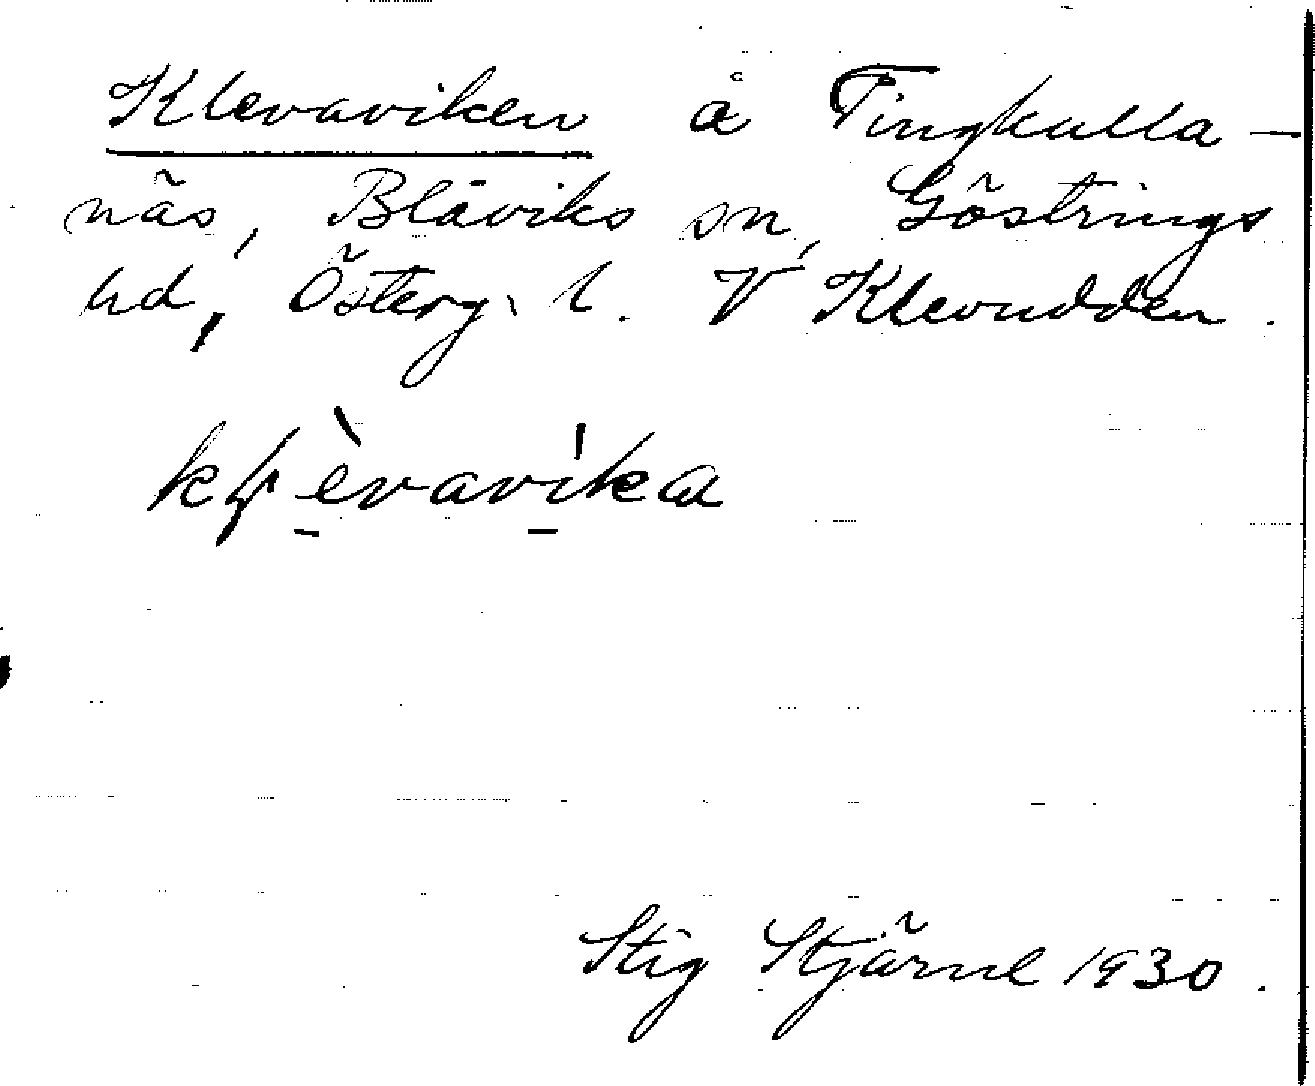 Klevaviken å Tingkulla-
näs, Blåviks sn, Göstrings
hd, Österg. l. V Klevudden.
kḷèvavika
Stig Stjärne 1930.